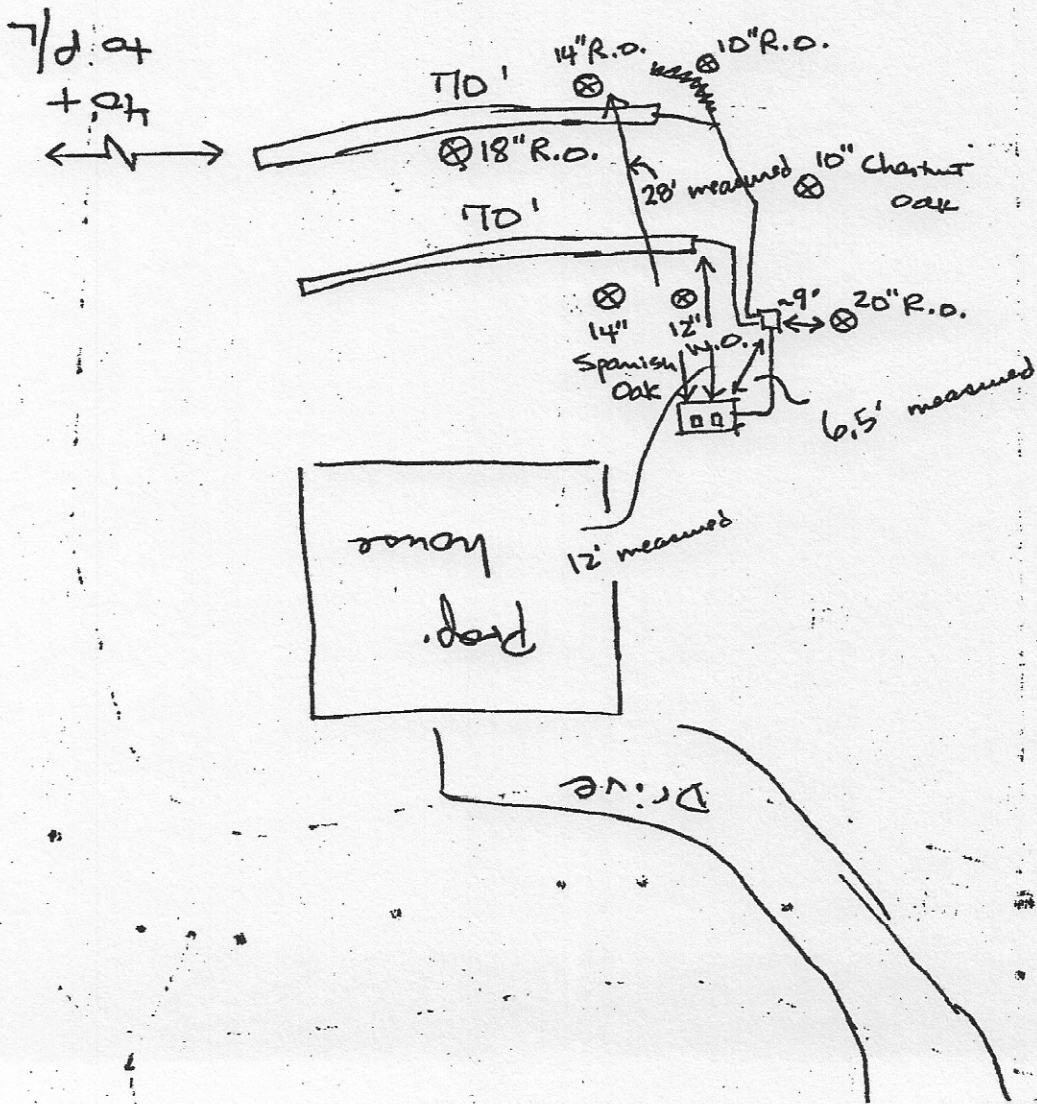 40'+
to P/L
14" R.O.
10" R.O.
70'
18" R.O.
28' measured
10" Chestnut
Oak
70'
14"
Spanish
Oak
12"
W.O.
~9'
20" R.O.
6.5' measured
12' measured
Prop.
house
Drive